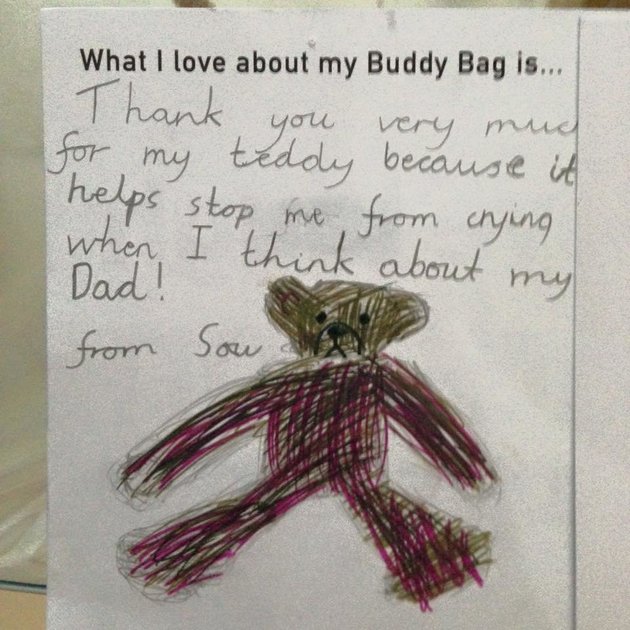 What I love about my Buddy Bag is...
Thank you very muc
for my teddy because it
helps stop me from crying
when I think about my
Dad!
from Sou